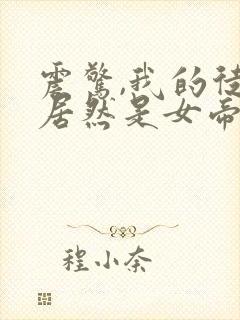 震惊,我的徒
居然是女帝
程小奈